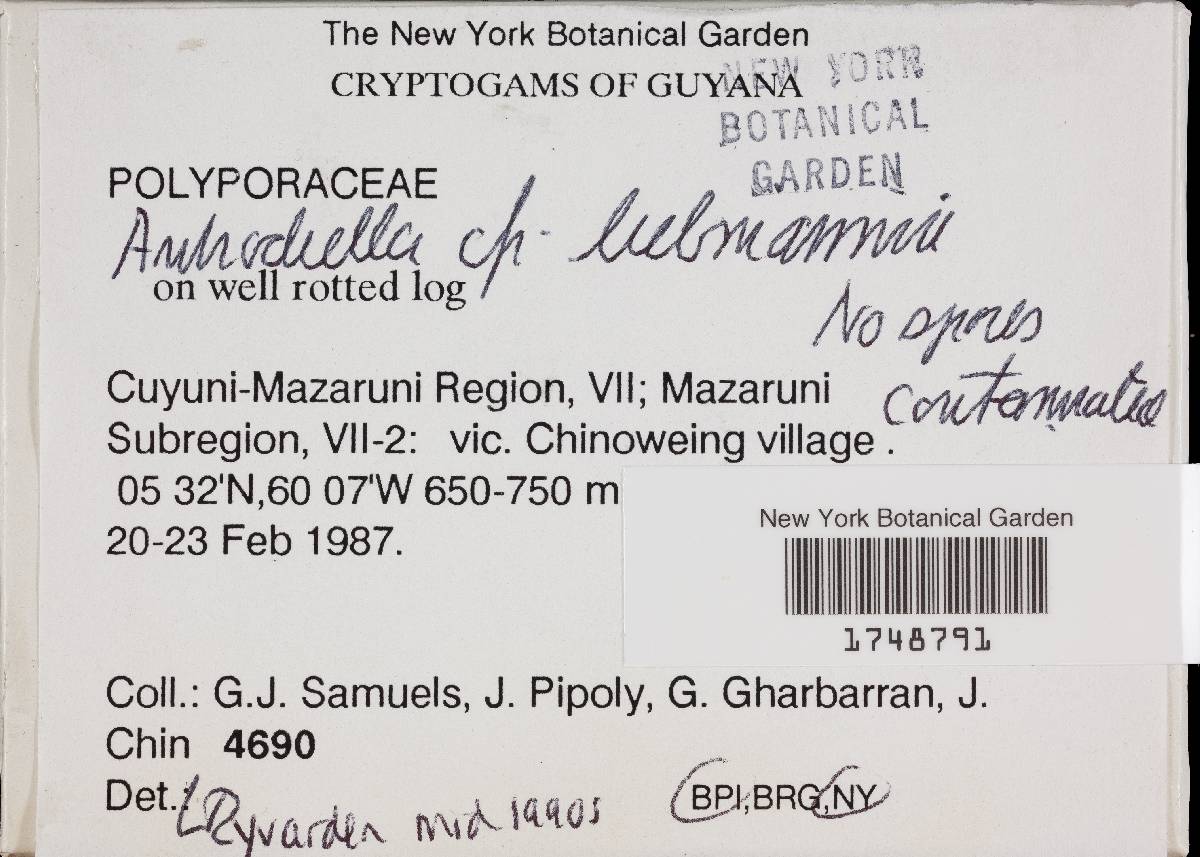 The New York Botanical Garden
CRYPTOGAMS OF GUYANA
NEW YORK
BOTANICAL
GARDEN
POLYPORACEAE
Antrodiella cf. liebmannii
on well rotted log
No spores
contaminated
Cuyuni-Mazaruni Region, VII; Mazaruni
Subregion, VII-2: vic. Chinoweing village .
05 32'N,60 07'W 650-750 m
20-23 Feb 1987.
New York Botanical Garden
1748791
Coll.: G.J. Samuels, J. Pipoly, G. Gharbarran, J.
Chin 4690
Det.: L Ryvarden mid 1990s
BPI,BRG,NY